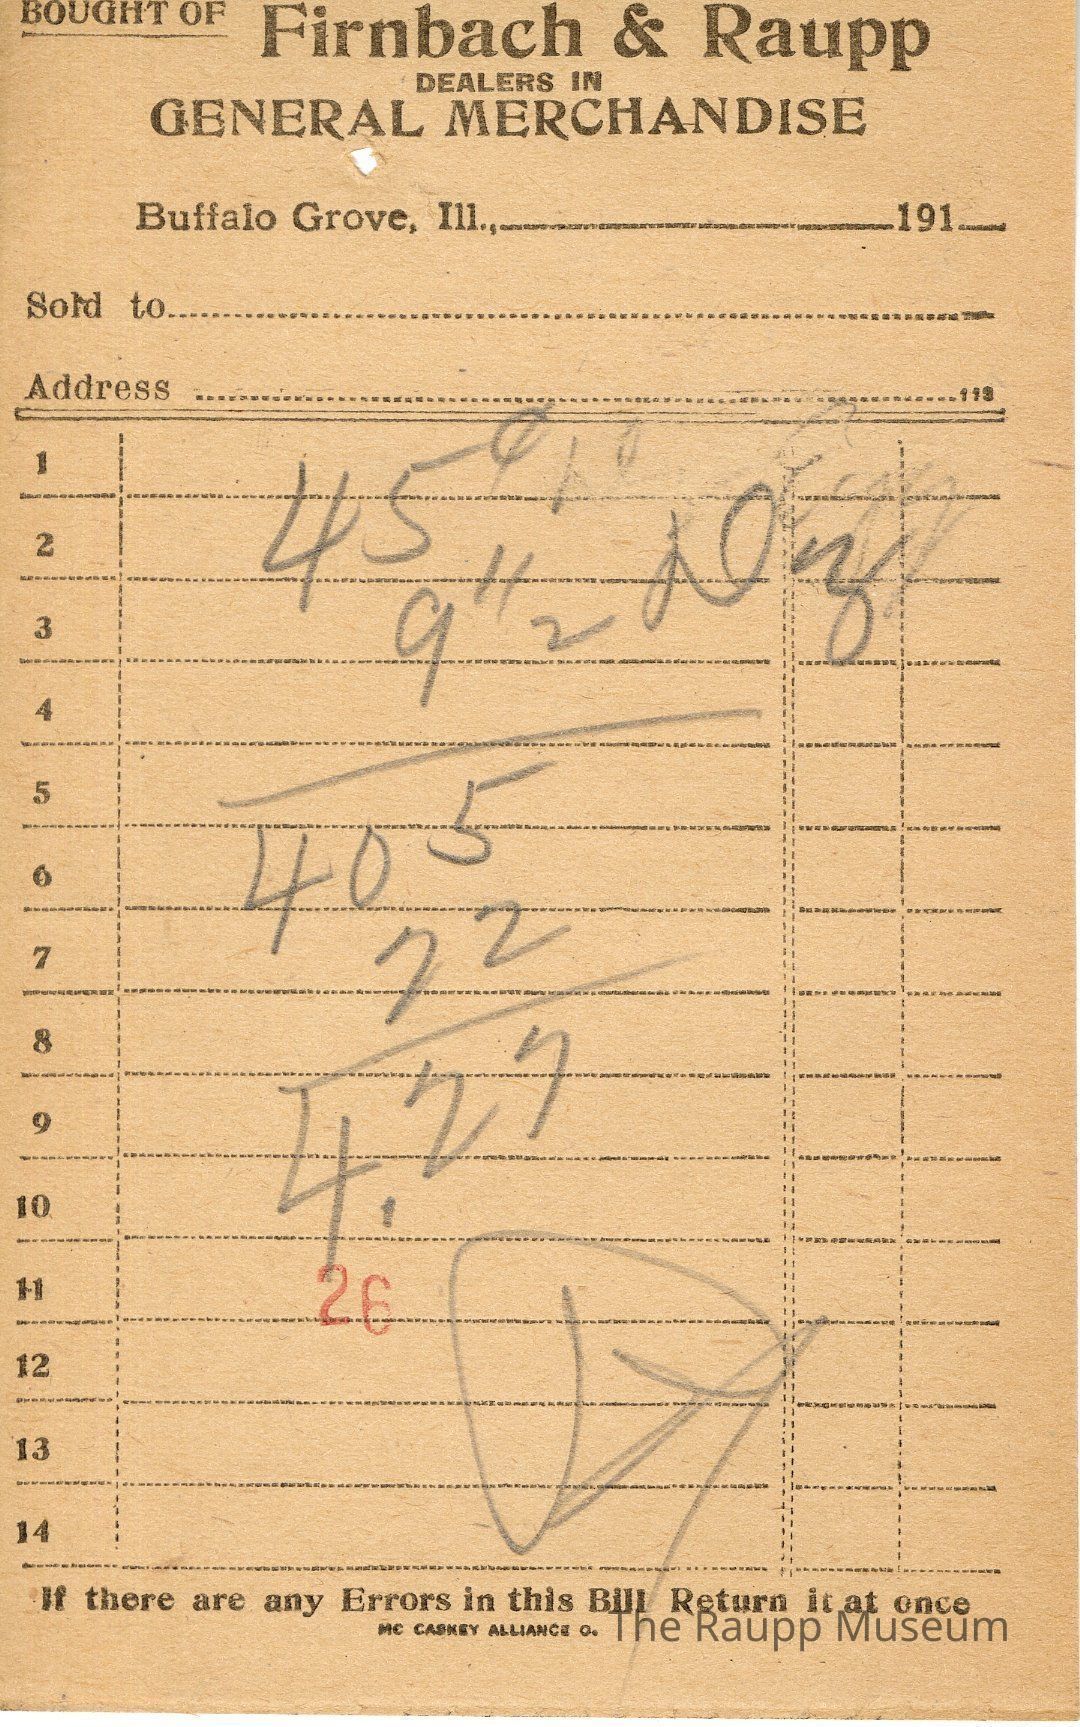 BOUGHT OF Firnbach & Raupp
DEALERS IN
GENERAL MERCHANDISE
Buffalo Grove, Ill., 191
Sold to
Address
1
45¢
2
Doz
3
9 " 2
4
5
405
6
7
72
8
9
4.27
10
11
26
12
13
14
If there are any Errors in this Bill Return it at once
MC CASKEY ALLIANCE O.
The Raupp Museum